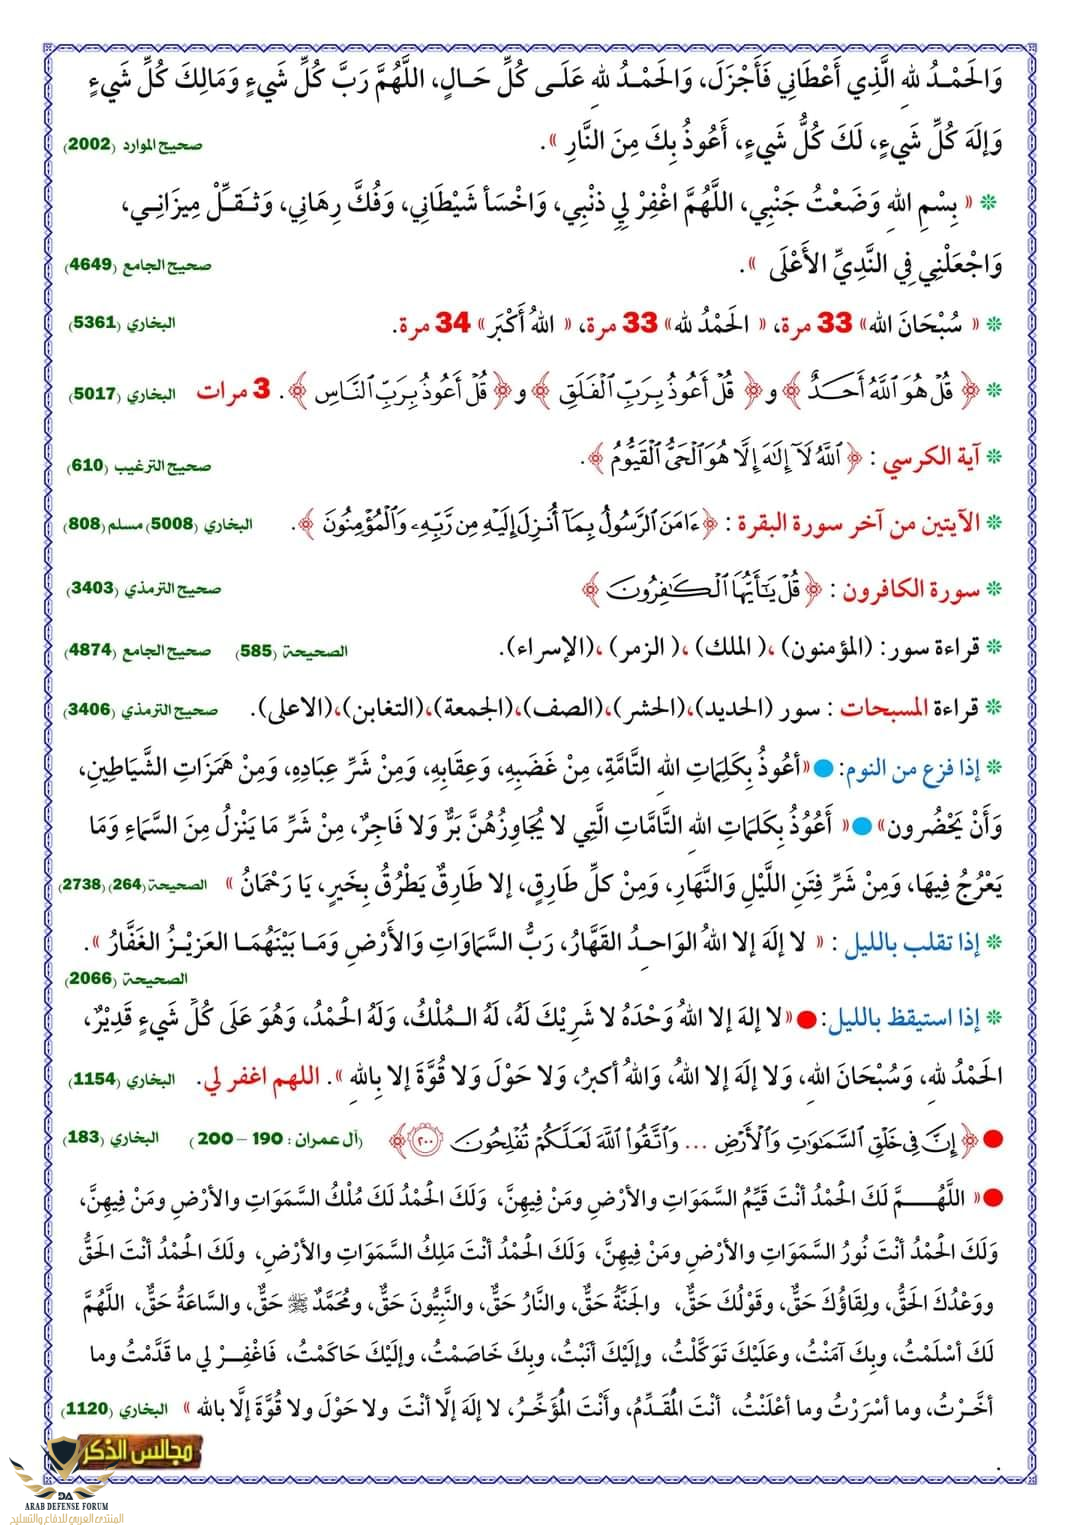 وَالحَمْـدُ للهِ الَّذِي أَعْطَانِي فَأَجْزَلَ، وَالحَمْـدُ للهِ عَلَـى كُلِّ حَـالٍ، اللَّهُمَّ رَبَّ كُلِّ شَيءٍ وَمَالِكَ كُلِّ شَيءٍ
وَإلَهَ كُلِّ شَيءٍ، لَكَ كُلُّ شَيءٍ، أَعُوذُ بِكَ مِنَ النَّارِ ». صحيح الموارد (2002)
« بِسْمِ اللهِ وَضَعْتُ جَنْبِي، اللَّهُمَّ اغْفِرْ لِي ذنْبِي، وَاخْسَأ شَيْطَانِي، وَفُكَّ رِهَانِي، وَثـقـِّلْ مِيزَانِـي،
وَاجْعَلْنِي فِي النَّدِيِّ الأَعْلَى ». صحيح الجامع (4649)
« سُبْحَانَ الله» 33 مرة، « الحَمْدُ لله» 33 مرة، « اللهُ أَكْبَر» 34 مرة. البخاري (5361)
﴿ قُلْ هُوَ ٱللَّهُ أَحَدٌ ﴾ و﴿ قُلْ أَعُوذُ بِرَبِّ ٱلْفَلَقِ ﴾ و﴿ قُلْ أَعُوذُ بِرَبِّ ٱلنَّاسِ ﴾. 3 مرات البخاري (5017)
آية الكرسي : ﴿ ٱللَّهُ لَآ إِلَٰهَ إِلَّا هُوَ ٱلْحَىُّ ٱلْقَيُّومُ ﴾. صحيح الترغيب (610)
الآيتين من آخر سورة البقرة : ﴿ ءَامَنَ ٱلرَّسُولُ بِمَآ أُنزِلَ إِلَيْهِ مِن رَّبِّهِۦ وَٱلْمُؤْمِنُونَ ﴾. البخاري (5008) مسلم (808)
سورة الكافرون : ﴿ قُلْ يَٰٓأَيُّهَا ٱلْكَٰفِرُونَ ﴾ صحيح الترمذي (3403)
قراءة سور: (المؤمنون) ،( الملك) ،( الزمر) ،(الإسراء). الصحيحة (585) صحيح الجامع (4874)
قراءة المسبحات : سور (الحديد)،(الحشر)،(الصف)،(الجمعة)،(التغابن)،(الاعلى). صحيح الترمذي (3406)
إذا فزع من النوم: «أعُوذُ بِكَلِمَاتِ اللهِ التَّامَّةِ، مِنْ غَضَبِهِ، وَعِقَابِهِ، وَمِنْ شَرِّ عِبَادِهِ، وَمِنْ هَمَزَاتِ الشَّيَاطِينِ،
وَأَنْ يَحْضُرون» « أَعُوُذُ بِكَلمَاتِ اللهِ التَّامَّاتِ الَّتِي لا يُجَاوِزُهُنَّ بَرٌّ وَلا فَاجِرٌ، مِنْ شَرِّ مَا يَنْزِلُ مِنَ السَّمَاءِ وَمَا
يَعْرُجُ فِيهَا، وَمِنْ شَرِّ فِتَنِ اللَّيْلِ وَالنَّهَارِ، وَمِنْ كلِّ طَارِقٍ، إلا طَارِقٌ يَطْرُقُ بِخَيرٍ، يَا رَحْمَانُ » الصحيحة (264) (2738)
إذا تقلب بالليل : « لا إلَهَ إلا اللهُ الوَاحِـدُ القَهَّارُ، رَبُّ السَّمَاوَاتِ وَالأَرْضِ وَمَـا بَيْنَهُمَـا العَزِيْـزُ الغَفَّارُ ».
الصحيحة (2066)
إذا استيقظ بالليل: «لا إلهَ إلا اللهُ وَحْدَهُ لا شَرِيْكَ لَهُ، لَهُ الـمُلْكُ، وَلَهُ الحَمْدُ، وَهُوَ عَلَى كُلِّ شَيءٍ قَدِيْرٌ،
الحَمْدُ للهِ، وَسُبْحَانَ اللهِ، وَلا إلَهَ إلا اللهُ، وَاللهُ أكبرُ، وَلا حَوْلَ وَلا قُوَّةَ إلا بِاللهِ ». اللهم اغفر لي. البخاري (1154)
﴿ إِنَّ فِى خَلْقِ ٱلسَّمَٰوَٰتِ وَٱلْأَرْضِ ... وَٱتَّقُوا۟ ٱللَّهَ لَعَلَّكُمْ تُفْلِحُونَ ٢٠٠ ﴾ (آل عمران : 190 – 200 ) البخاري (183)
« اللَّهُـــمَّ لَكَ الحَمْدُ أنْتَ قَيِّمُ السَّمَوَاتِ والأرْضِ ومَنْ فِيهِنَّ، وَلَكَ الحَمْدُ لَكَ مُلْكُ السَّمَوَاتِ والأرْضِ ومَنْ فِيهِنَّ،
وَلَكَ الحَمْدُ أنْتَ نُورُ السَّمَوَاتِ والأرْضِ ومَنْ فِيهِنَّ، وَلَكَ الحَمْدُ أنْتَ مَلِكُ السَّمَوَاتِ والأرْضِ، ولَكَ الحَمْدُ أنْتَ الحَقُّ
ووَعْدُكَ الحَقُّ، ولِقَاؤُكَ حَقٌّ، وقَوْلُكَ حَقٌّ، والجَنَّةُ حَقٌّ، والنَّارُ حَقٌّ، والنَّبِيُّونَ حَقٌّ، ومُحَمَّدٌ ﷺ حَقٌّ، والسَّاعَةُ حَقٌّ، اللَّهُمَّ
لَكَ أسْلَمْتُ، وبِكَ آمَنْتُ، وعَلَيْكَ تَوَكَّلْتُ، وإلَيْكَ أنَبْتُ، وبِكَ خَاصَمْتُ، وإلَيْكَ حَاكَمْتُ، فَاغْفِـرْ لي ما قَدَّمْتُ وما
أخَّـرْتُ، وما أسْرَرْتُ وما أعْلَنْتُ، أنْتَ المُقَدِّمُ، وأَنْتَ المُؤَخِّـرُ، لا إلهَ إلَّا أنْتَ ولا حَوْلَ ولا قُوَّةَ إلَّا بالله » البخاري (1120)
مجالس الذكر
DA
ARAB DEFENSE FORUM
المنتدى العربي للدفاع والتسليح